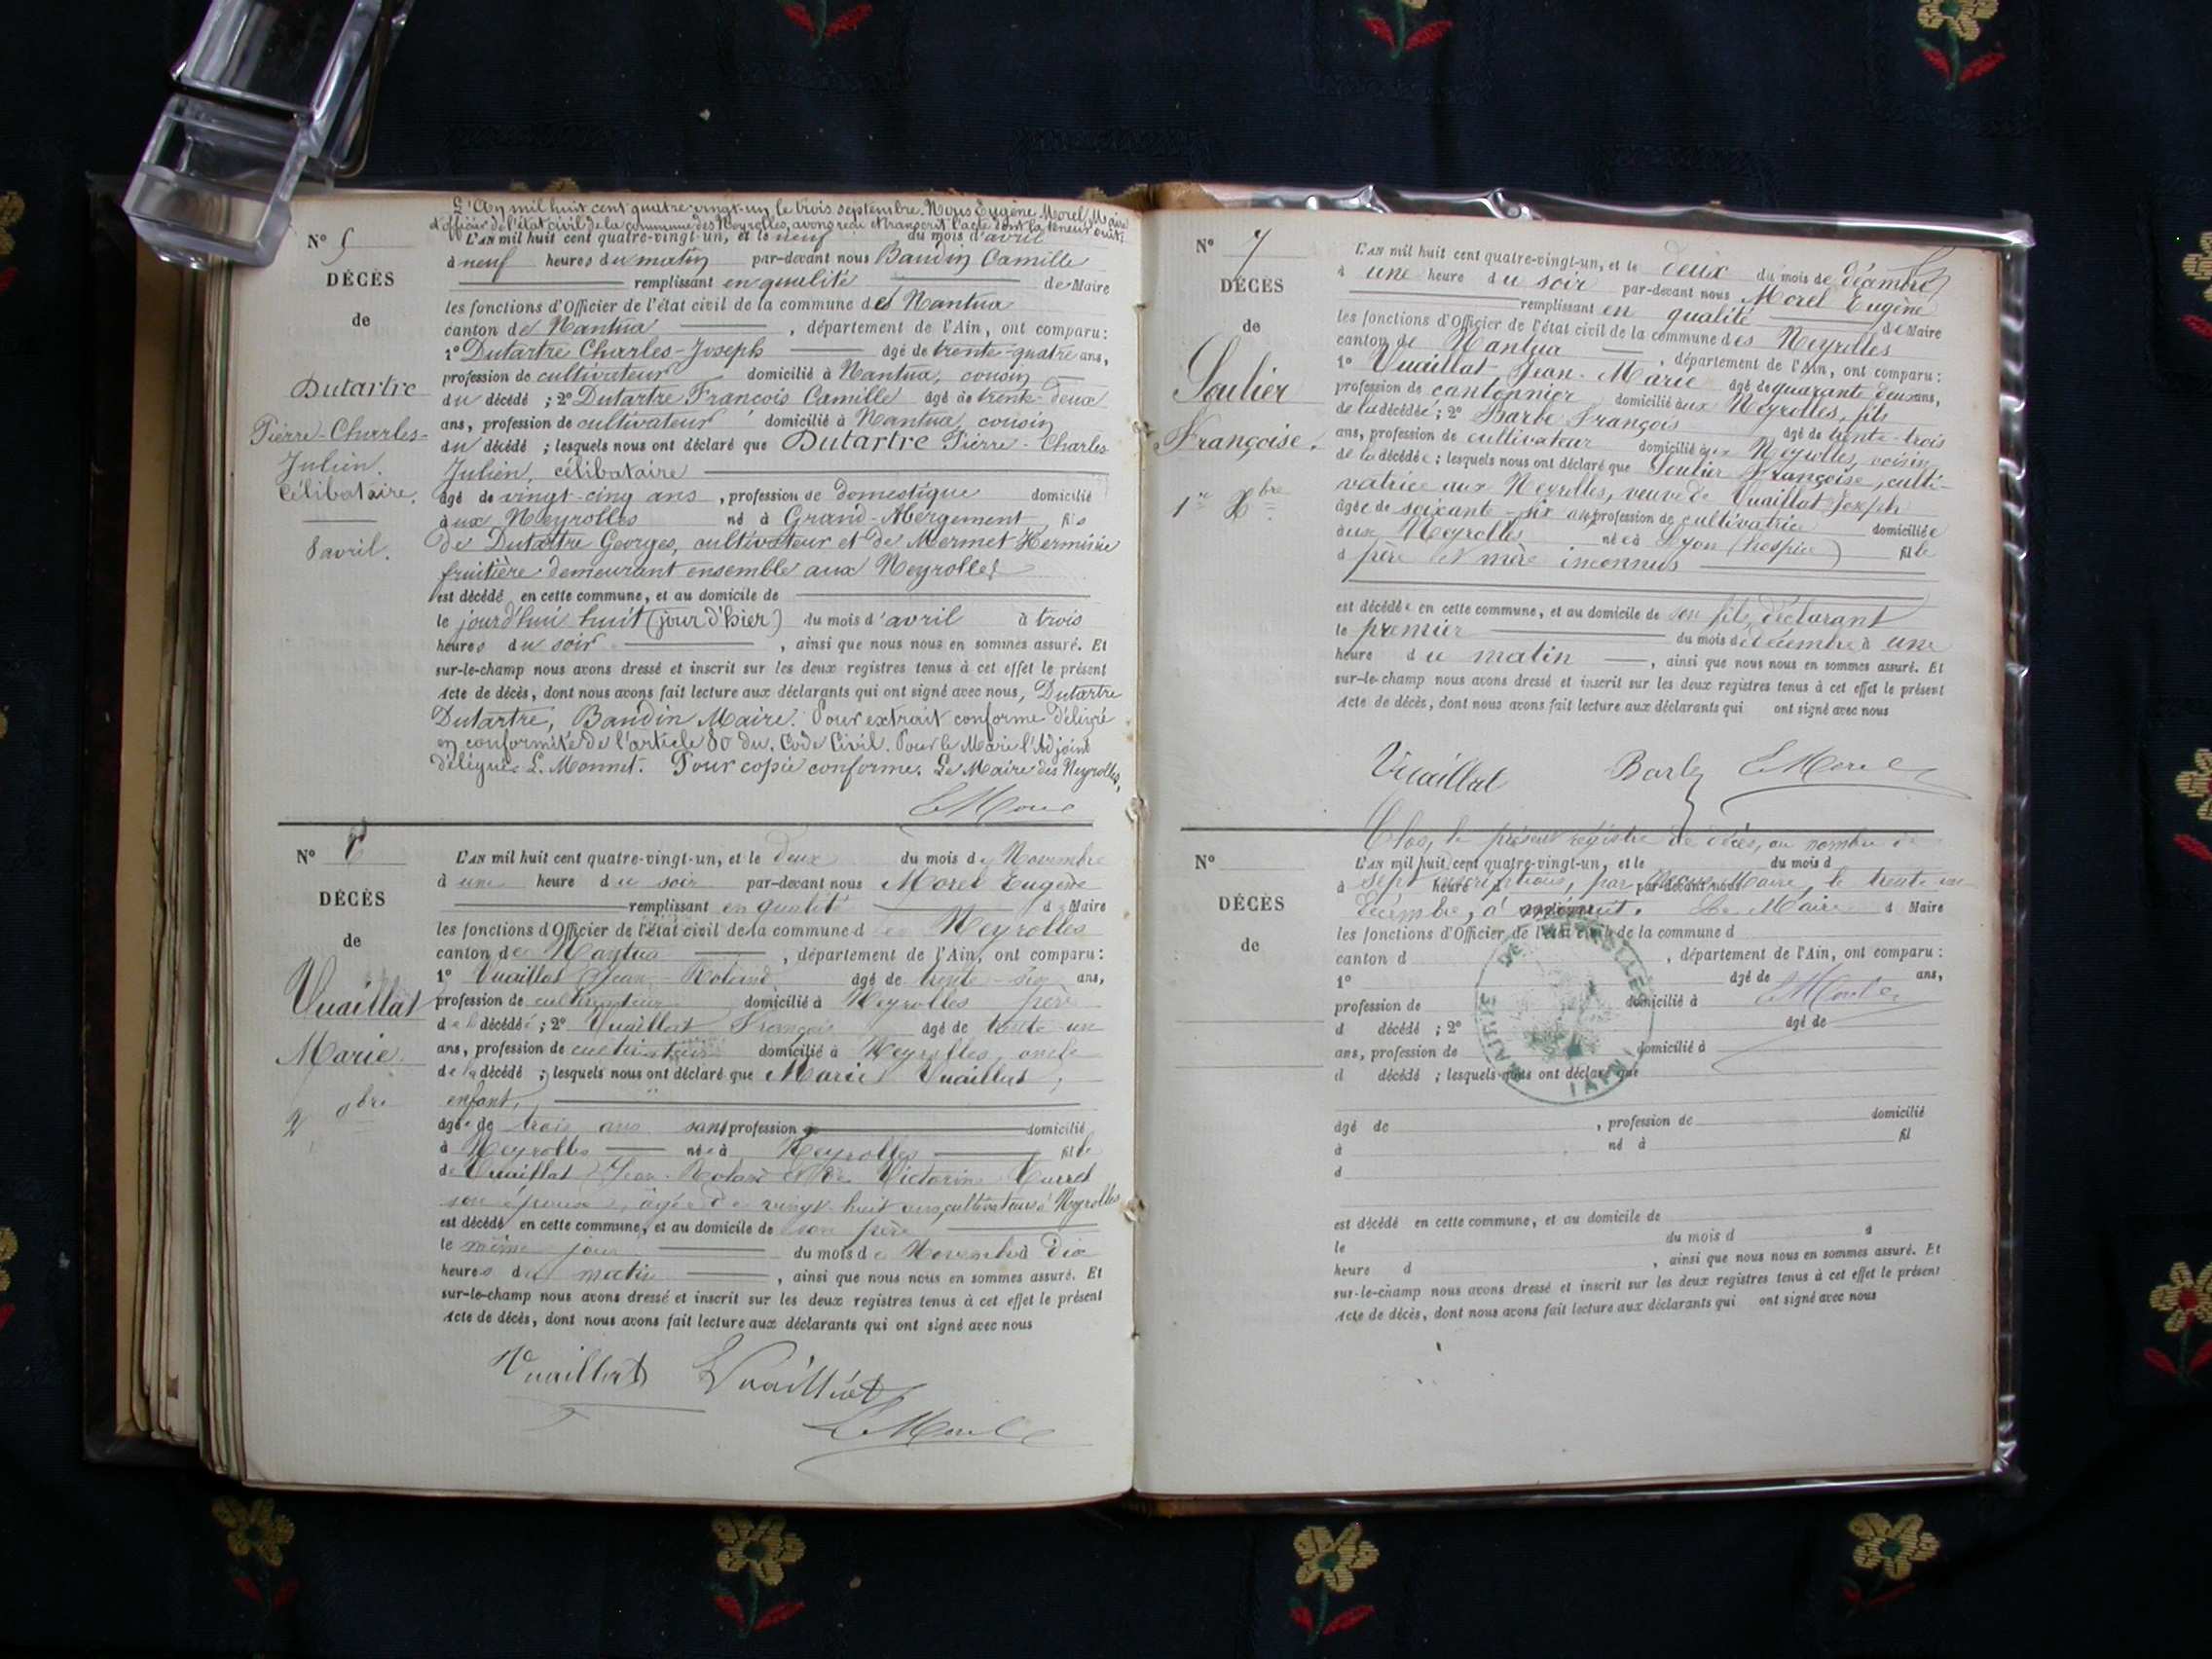 L'An mil huit cent quatre-vingt-un le trois septembre. Nous Eugène Morel Maire
d'officier de l'état civil de la commune des Neyrolles, avons reçu et transcrit l'acte dont la teneur suit:
N° 5
DÉCÈS
de
Dutartre
Pierre-Charles-
Julien.
Célibataire.
8 avril.
L'AN mil huit cent quatre-vingt-un, et le neuf du mois d'avril
à neuf heures du matin par-devant nous Baudin Camille
remplissant en qualité de Maire
les fonctions d'Officier de l'état civil de la commune de Nantua
canton de Nantua, département de l'Ain, ont comparu:
1° Dutartre Charles-Joseph âgé de trente-quatre ans,
profession de cultivateur domicilié à Nantua, cousin
du décédé ; 2° Dutartre François Camille âgé de trente-deux
ans, profession de cultivateur domicilié à Nantua, cousin
du décédé ; lesquels nous ont déclaré que Dutartre Pierre-Charles
Julien, célibataire
âgé de vingt-cinq ans, profession de domestique domicilié
aux Neyrolles né à Grand-Abergement, fils
de Dutartre Georges, cultivateur et de Mermet Herminie
fruitière demeurant ensemble aux Neyrolles
est décédé en cette commune, et au domicile de
le jourd'hui huit (jour d'hier) du mois d'avril à trois
heures du soir, ainsi que nous nous en sommes assuré. Et
sur-le-champ nous avons dressé et inscrit sur les deux registres tenus à cet effet le présent
Acte de décès, dont nous avons fait lecture aux déclarants qui ont signé avec nous, Dutartre
Dutartre, Baudin Maire. Pour extrait conforme délivré
en conformité de l'article 80 du Code Civil. Pour le Maire l'Adjoint
délégué L. Monnet. Pour copie conforme. Le Maire des Neyrolles,
E Morel
N° 6
DÉCÈS
de
Vuaillat
Marie.
2 9bre
L'AN mil huit cent quatre-vingt-un, et le deux du mois de Novembre
à une heure du soir par-devant nous Morel Eugène
remplissant en qualité de Maire
les fonctions d'Officier de l'état civil de la commune des Neyrolles
canton de Nantua, département de l'Ain, ont comparu:
1° Vuaillat Jean-Roland âgé de trente-six ans,
profession de cultivateur domicilié à Neyrolles père
de la décédée ; 2° Vuaillat François âgé de trente un
ans, profession de cultivateur domicilié à Neyrolles, oncle
de la décédé ; lesquels nous ont déclaré que Marie Vuaillat,
enfant,
âgée de trois ans sans profession domicilié
à Neyrolles née à Neyrolles fille
de Vuaillat Jean-Roland et de Victorine
son épouse, âgée de vingt-huit ans, cultivateurs à Neyrolles
est décédé en cette commune, et au domicile de son père
le même jour du mois de Novembre à dix
heures du matin, ainsi que nous nous en sommes assuré. Et
sur-le-champ nous avons dressé et inscrit sur les deux registres tenus à cet effet le présent
Acte de décès, dont nous avons fait lecture aux déclarants qui ont signé avec nous
Vuaillat Vuaillat
E Morel
N° 7
DÉCÈS
de
Soulier
Françoise.
1er Xbre
L'AN mil huit cent quatre-vingt-un, et le deux du mois de décembre
à une heure du soir par-devant nous Morel Eugène
remplissant en qualité de Maire
les fonctions d'Officier de l'état civil de la commune des Neyrolles
canton de Nantua, département de l'Ain, ont comparu:
1° Vuaillat Jean-Marie âgé de quarante deux ans,
profession de cantonnier domicilié aux Neyrolles, fils
de la décédée ; 2° Barbe François âgé de trente-trois
ans, profession de cultivateur domicilié aux Neyrolles, voisin
de la décédée ; lesquels nous ont déclaré que Soulier Françoise, culti-
vatrice aux Neyrolles, veuve de Vuaillat Joseph
âgée de soixante-six ans profession de cultivatrice domiciliée
aux Neyrolles née à Lyon (hospice) fille
d père et mère inconnus
est décédée en cette commune, et au domicile de son fils, déclarant
le premier du mois de décembre à une
heure du matin, ainsi que nous nous en sommes assuré. Et
sur-le-champ nous avons dressé et inscrit sur les deux registres tenus à cet effet le présent
Acte de décès, dont nous avons fait lecture aux déclarants qui ont signé avec nous
Vuaillat Barbe E Morel
Clos, le présent registre de décès, au nombre de
sept inscriptions, par Nous Maire, le trente un
décembre, à minuit. Le Maire
E Morel
MAIRIE DES NEYROLLES (AIN)
N°
DÉCÈS
de
L'AN mil huit cent quatre-vingt-un, et le du mois d
à heure d par-devant nous
remplissant d Maire
les fonctions d'Officier de l'état civil de la commune d
canton d, département de l'Ain, ont comparu:
1° âgé de ans,
profession de domicilié à
d décédé ; 2° âgé de
ans, profession de domicilié à
d décédé ; lesquels nous ont déclaré que
âgé de, profession de domicilié
à né à fil
d
est décédé en cette commune, et au domicile de
le du mois d à
heure d, ainsi que nous nous en sommes assuré. Et
sur-le-champ nous avons dressé et inscrit sur les deux registres tenus à cet effet le présent
Acte de décès, dont nous avons fait lecture aux déclarants qui ont signé avec nous